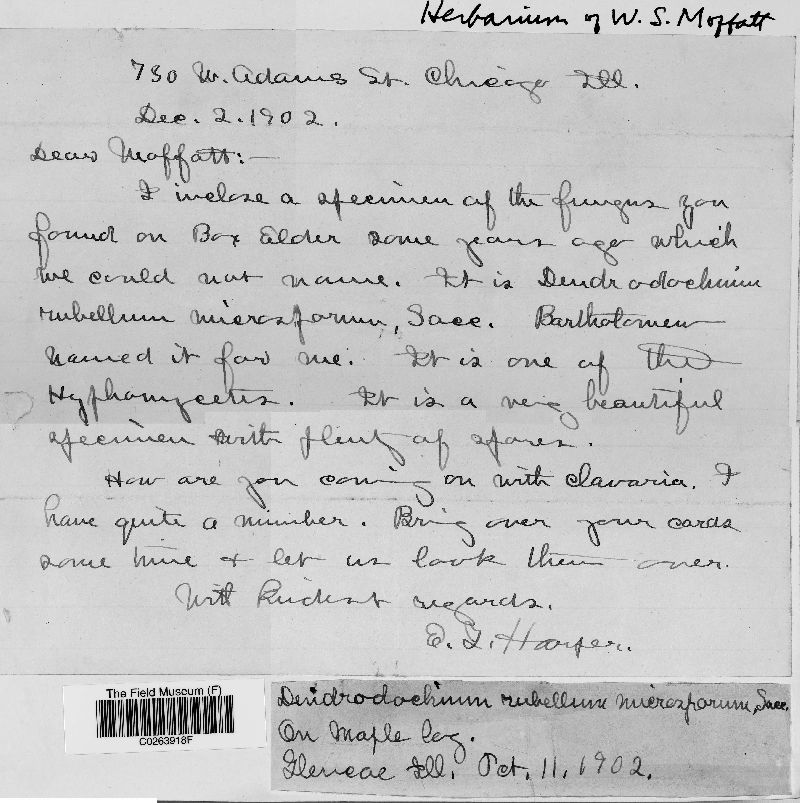 Herbarium of W. S. Moffatt
730 W. Adams St. Chicago Ill.
Dec. 2. 1902.
Dear Moffatt:—
I inclose a specimen of the fungus you
found on Box Elder some years ago which
we could not name. It is Dendrodochium
rubellum microsporum, Sacc. Bartholomew
named it for me. It is one of the
Hyphomycetes. It is a very beautiful
specimen with plenty of spores.
How are you coming on with clavaria. I
have quite a number. Bring over your cards
some time & let us look them over.
With kindest regards.
E. T. Harper.
The Field Museum (F)
C0263918F
Dendrodochium rubellum microsporum, Sacc.
On Maple log.
Glencoe Ill. Oct. 11, 1902.